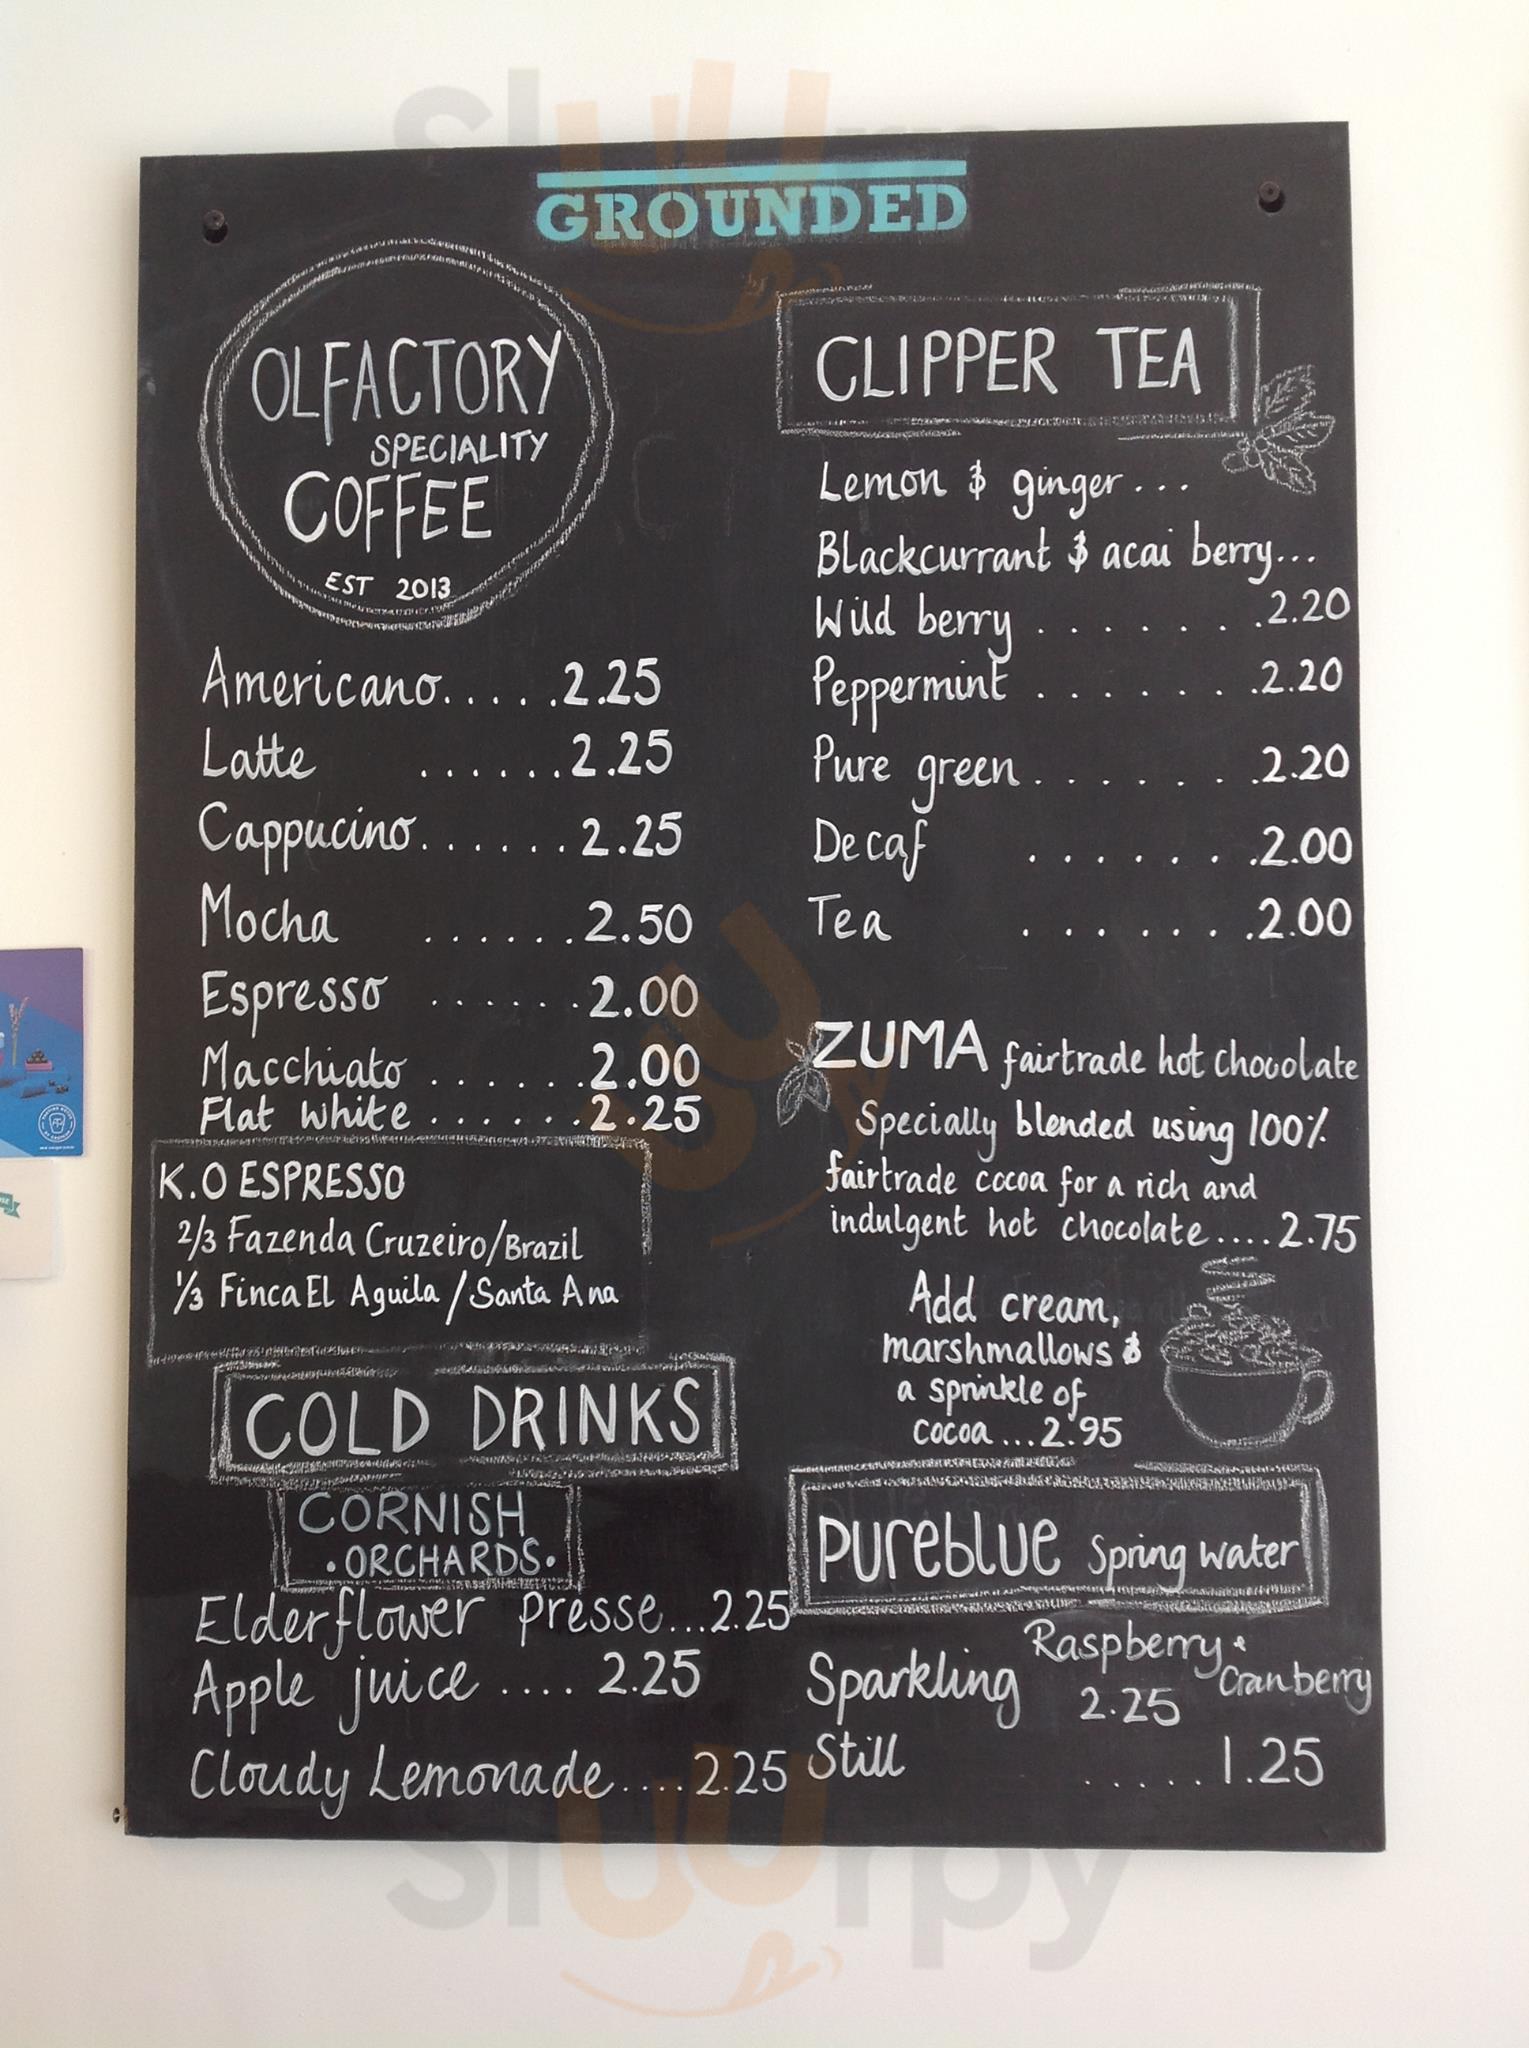 GROUNDED
OLFACTORY
SPECIALITY
COFFEE
EST 2013
Americano.....2.25
Latte ......2.25
Cappucino......2.25
Mocha ......2.50
Espresso ......2.00
Macchiato ......2.00
Flat white ......2.25
K.O ESPRESSO
2/3 Fazenda Cruzeiro/Brazil
1/3 Finca El Aguila / Santa Ana
COLD DRINKS
CORNISH
•ORCHARDS•
Elderflower presse...2.25
Apple juice .... 2.25
Cloudy Lemonade....2.25
CLIPPER TEA
Lemon & ginger...
Blackcurrant & acai berry...
Wild berry ........2.20
Peppermint ........2.20
Pure green........2.20
Decaf .......2.00
Tea .......2.00
ZUMA fairtrade hot chocolate
Specially blended using 100%
fairtrade cocoa for a rich and
indulgent hot chocolate....2.75
Add cream,
marshmallows &
a sprinkle of
cocoa...2.95
pureblue Spring water
Sparkling Raspberry & Cranberry
2.25
Still ......1.25
Sluurpy